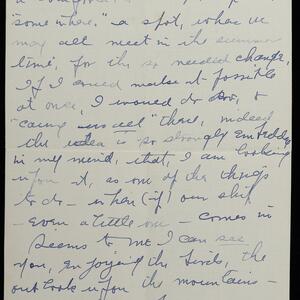 "some where." a spot, where we
may all meet in the summer
time, for the so needed change,
If I could make it possible
at once, I would do so, &
"camp us all" there, indeed
the idea is so strongly embedded
in my mind, that, I am looking
upon it, as one of the things
to do – when (if) our ship
– even a little one – comes in
Seems to me I can see
you, enjoying the birds, the
outlook upon the mountains –